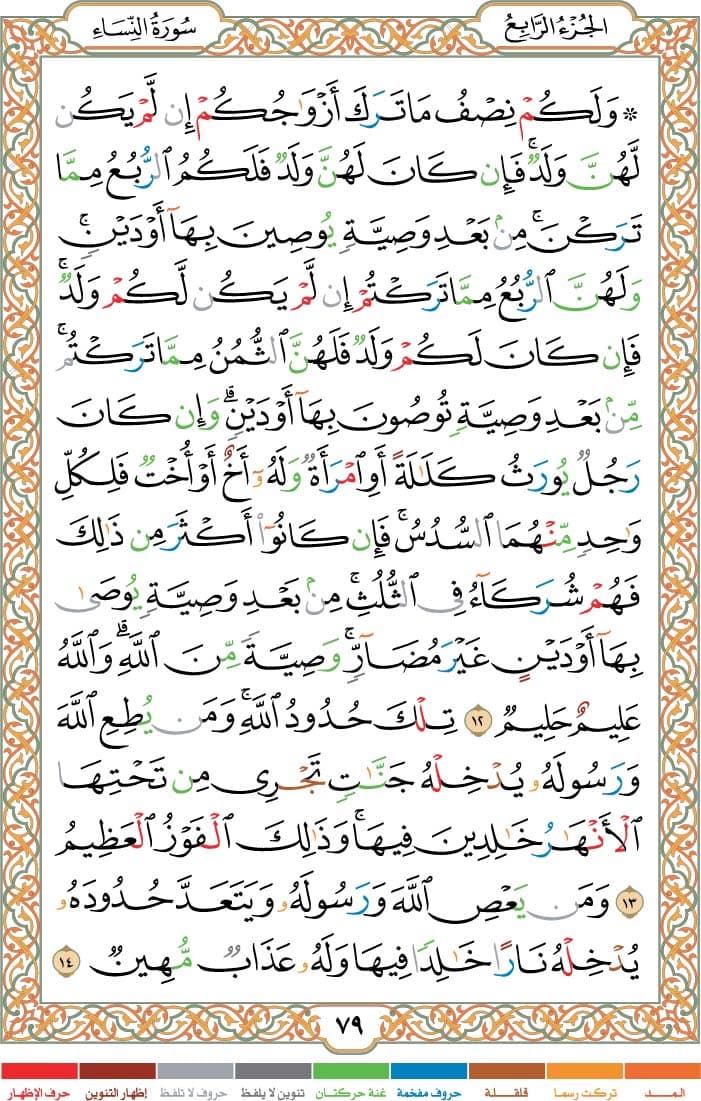 الجُزْءُ الرَّابِعُ
سُورَةُ النِّسَاءِ
* وَلَكُمْ نِصْفُ مَا تَرَكَ أَزْوَٰجُكُمْ إِن لَّمْ يَكُن
لَّهُنَّ وَلَدٌ ۚ فَإِن كَانَ لَهُنَّ وَلَدٌ فَلَكُمُ ٱلرُّبُعُ مِمَّا
تَرَكْنَ ۚ مِنۢ بَعْدِ وَصِيَّةٍ يُوصِينَ بِهَآ أَوْ دَيْنٍ ۚ
وَلَهُنَّ ٱلرُّبُعُ مِمَّا تَرَكْتُمْ إِن لَّمْ يَكُن لَّكُمْ وَلَدٌ ۚ
فَإِن كَانَ لَكُمْ وَلَدٌ فَلَهُنَّ ٱلثُّمُنُ مِمَّا تَرَكْتُم ۚ
مِّنۢ بَعْدِ وَصِيَّةٍ تُوصُونَ بِهَآ أَوْ دَيْنٍ ۗ وَإِن كَانَ
رَجُلٌ يُورَثُ كَلَٰلَةً أَوِ ٱمْرَأَةٌ وَلَهُۥٓ أَخٌ أَوْ أُخْتٌ فَلِكُلِّ
وَٰحِدٍ مِّنْهُمَا ٱلسُّدُسُ ۚ فَإِن كَانُوٓا۟ أَكْثَرَ مِن ذَٰلِكَ
فَهُمْ شُرَكَآءُ فِى ٱلثُّلُثِ ۚ مِنۢ بَعْدِ وَصِيَّةٍ يُوصَىٰ
بِهَآ أَوْ دَيْنٍ غَيْرَ مُضَآرٍّ ۚ وَصِيَّةً مِّنَ ٱللَّهِ ۗ وَٱللَّهُ
عَلِيمٌ حَلِيمٌ ١٢ تِلْكَ حُدُودُ ٱللَّهِ ۚ وَمَن يُطِعِ ٱللَّهَ
وَرَسُولَهُۥ يُدْخِلْهُ جَنَّٰتٍ تَجْرِى مِن تَحْتِهَا
ٱلْأَنْهَٰرُ خَٰلِدِينَ فِيهَا ۚ وَذَٰلِكَ ٱلْفَوْزُ ٱلْعَظِيمُ
١٣ وَمَن يَعْصِ ٱللَّهَ وَرَسُولَهُۥ وَيَتَعَدَّ حُدُودَهُۥ
يُدْخِلْهُ نَارًا خَٰلِدًا فِيهَا وَلَهُۥ عَذَابٌ مُّهِينٌ ١٤
٧٩
المــد تركت رسما قلقلة حروف مفخمة غنة حركتان تنوين لا يلفظ حروف لا تلفظ إظهار التنوين حرف الإظهار